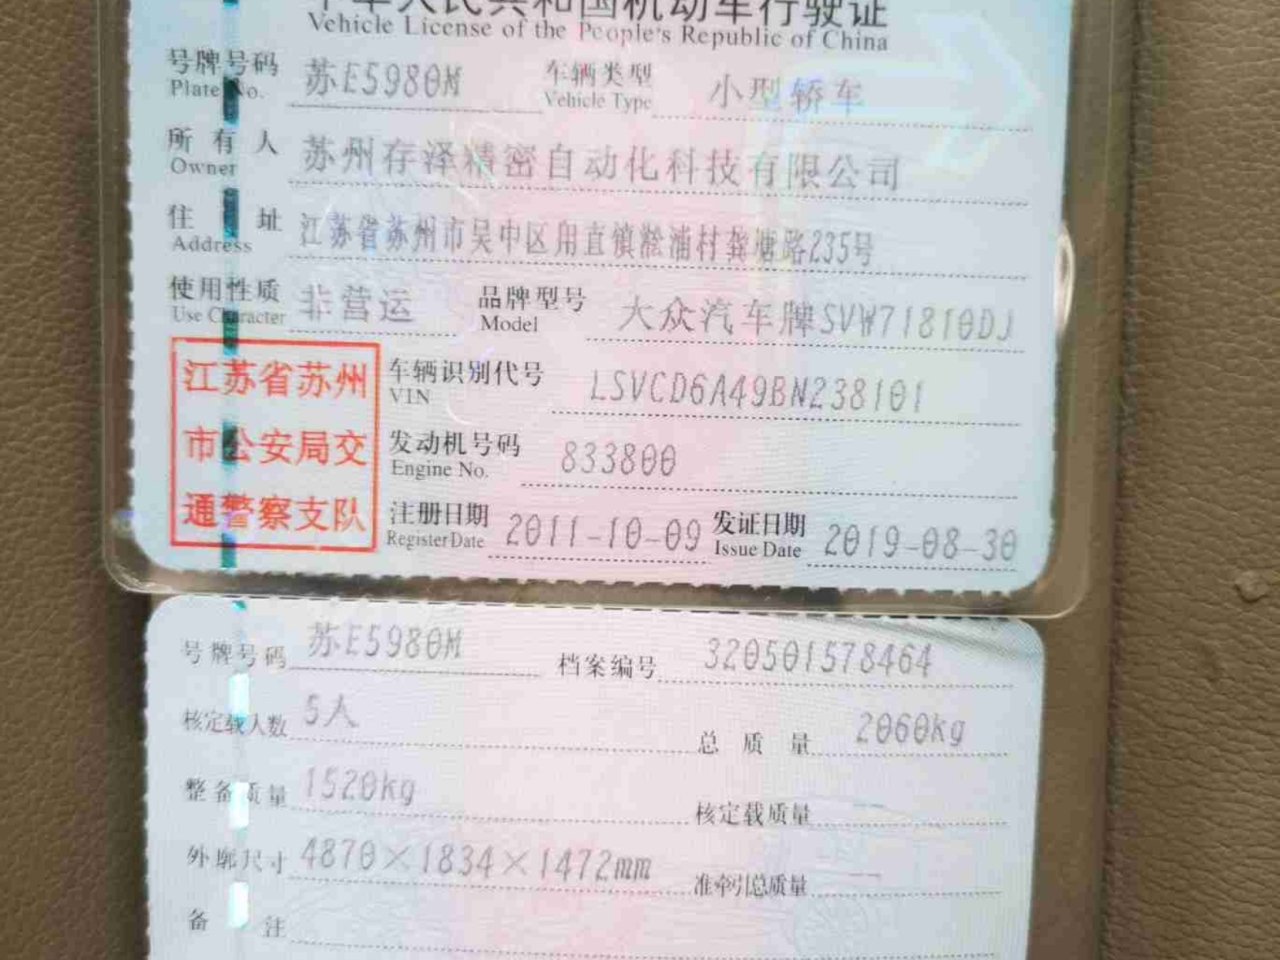 中华人民共和国机动车行驶证
Vehicle License of the People's Republic of China
号牌号码 苏E5980M 车辆类型 小型轿车
Plate No. Vehicle Type
所有人 苏州存泽精密自动化科技有限公司
Owner
住址 江苏省苏州市吴中区甪直镇淞浦村龚塘路235号
Address
使用性质 非营运 品牌型号 大众汽车牌SVW71810DJ
Use Character Model
江苏省苏州
市公安局交
通警察支队
车辆识别代号 LSVCD6A49BN238101
VIN
发动机号码 833800
Engine No.
注册日期 2011-10-09 发证日期 2019-08-30
Register Date Issue Date
号牌号码 苏E5980M 档案编号 320501578464
核定载人数 5人 总质量 2060kg
整备质量 1520kg 核定载质量 --
外廓尺寸 4870×1834×1472mm 准牵引总质量 --
备注